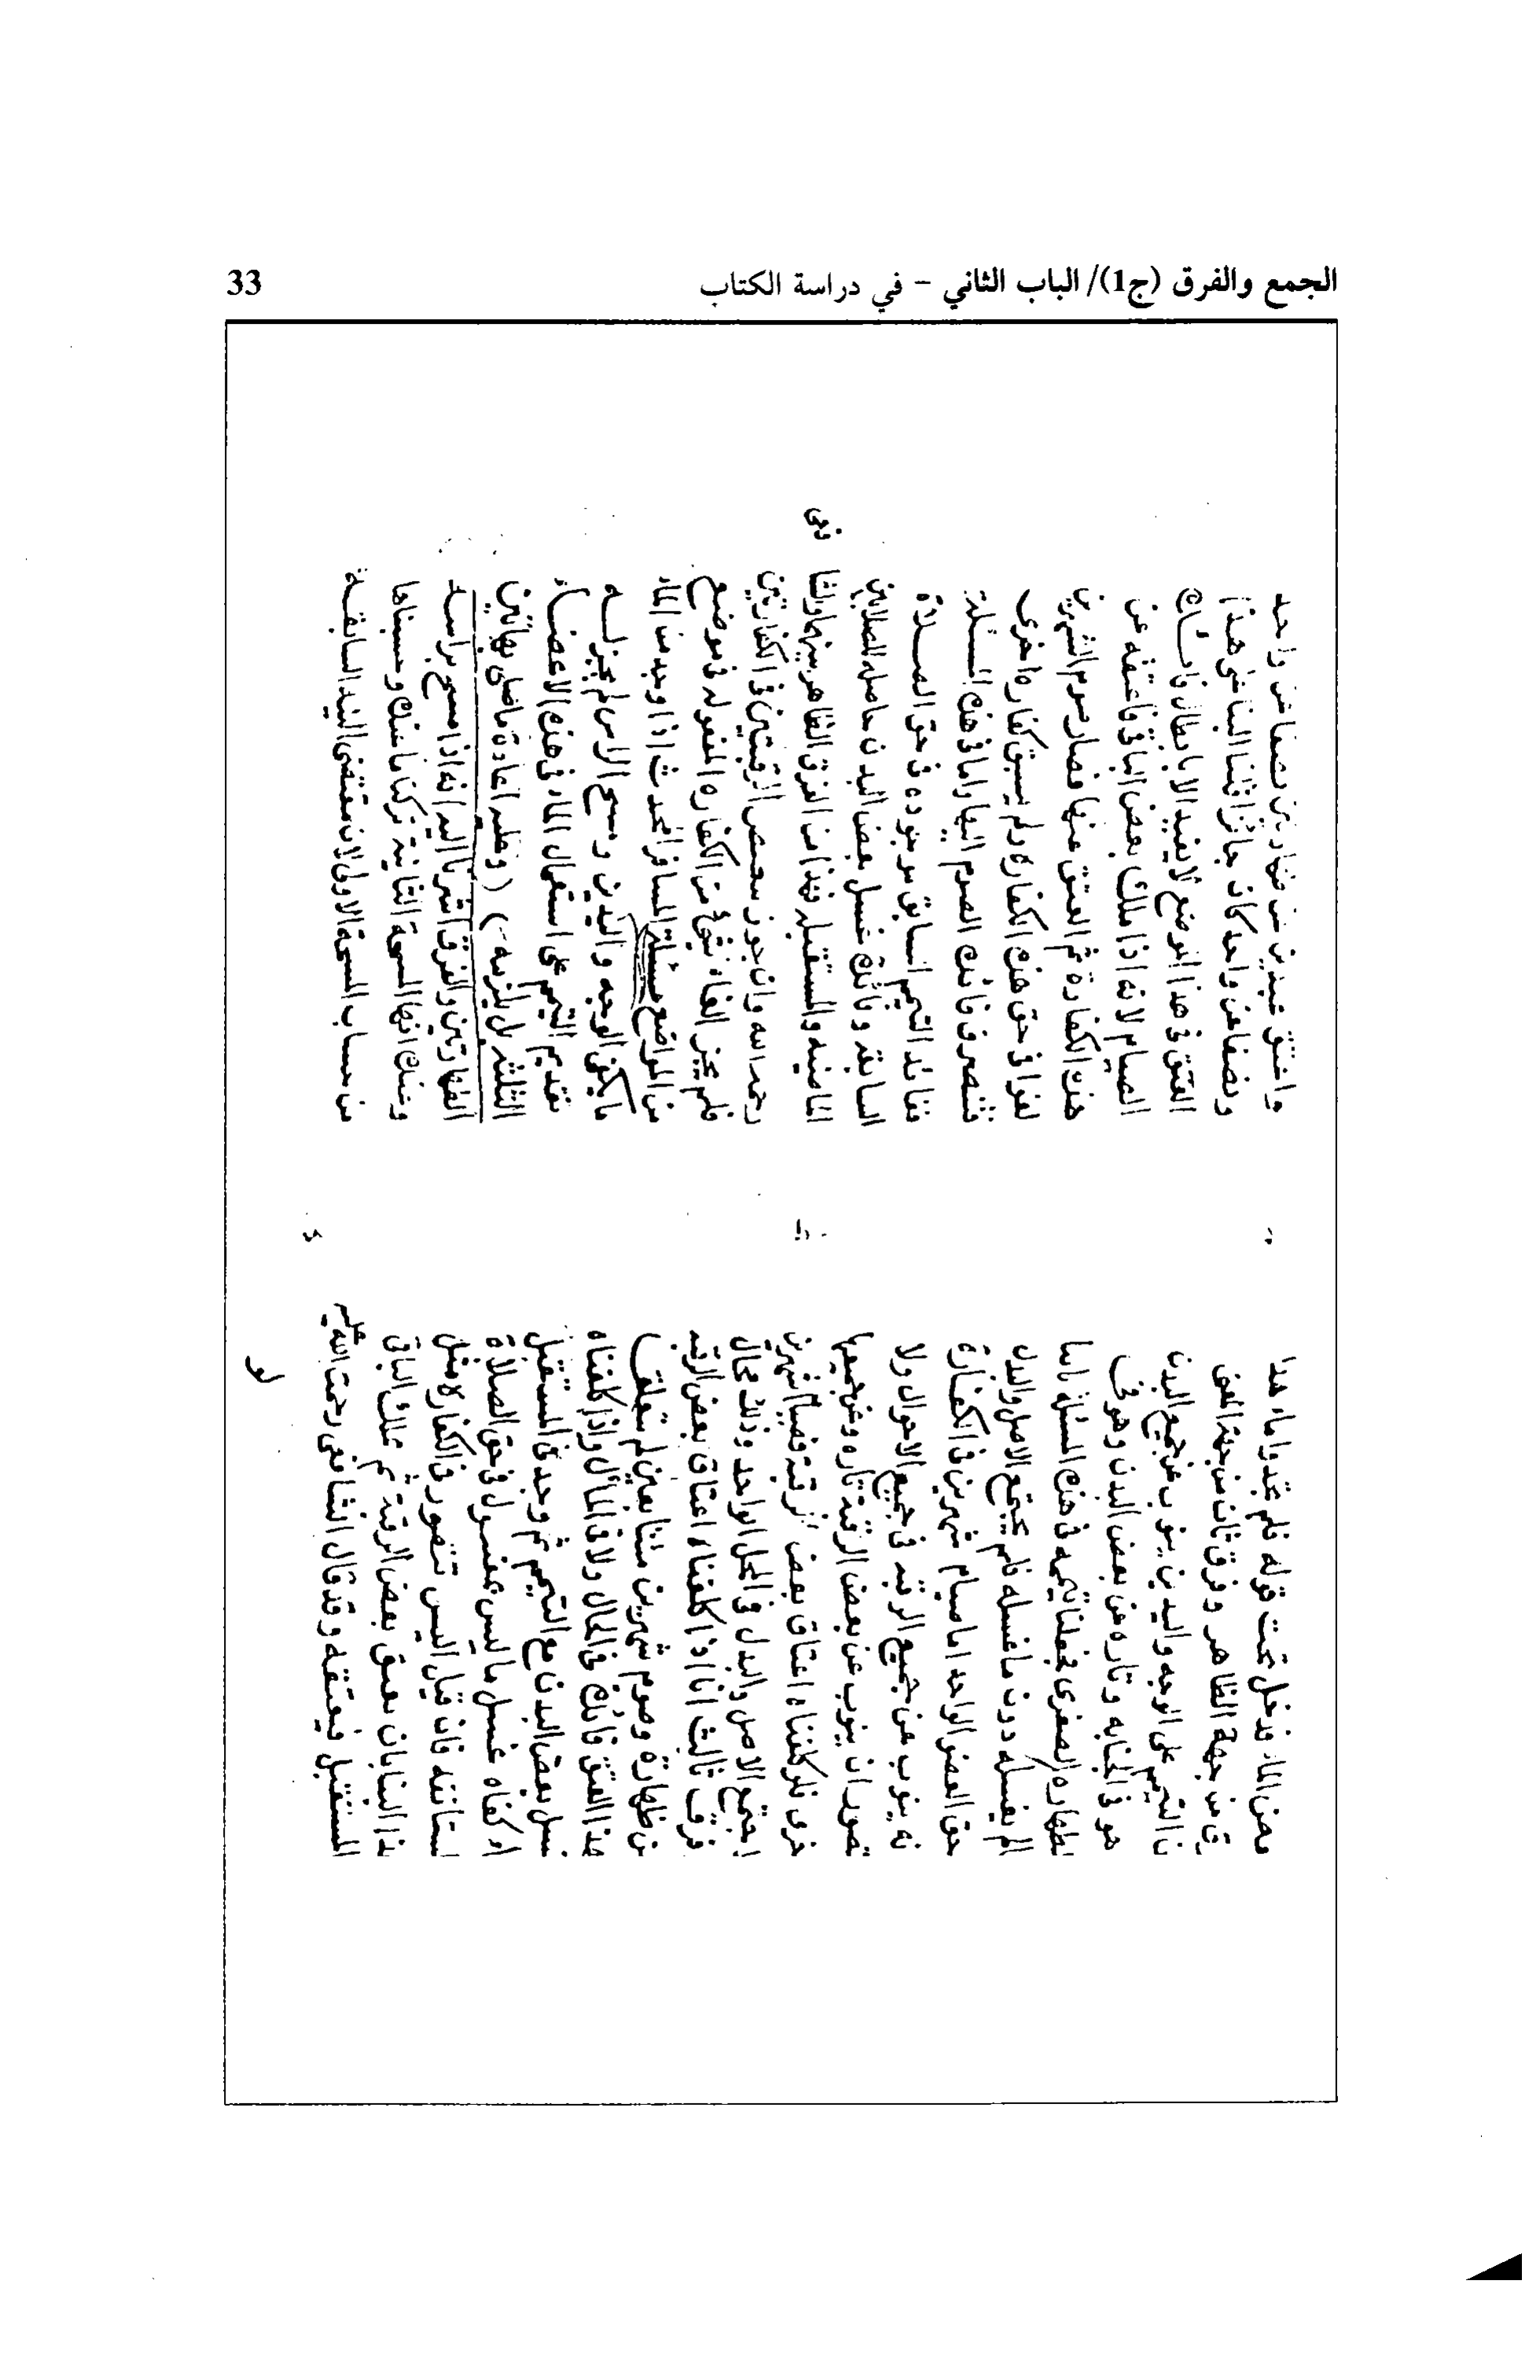 الجمع والفرق (ج1)/ الباب الثاني – في دراسة الكتاب
33
بعض الماء فدخل تحت قوله فلم تجدوا ماء هذا
رق من جهة الظاهر وفرق ثان من جهة المعنى
ن التيمم على الوجه واليدين ينوب عن جميع البدن
هو في الجنابه وتاره عن بعض البدن وهو في
لطهاره الصغرى فجعلنا تيممه في هذه المسئلة نايبا
الم يغسله دون ما غسله فلم يجتمع الاصل والبدل
حق العضو الواحد اما صيام شهرين في الكفارة
نه ينوب عن جميع الرقبه في جميع الاحوال ولا
تصور ان ينوب عن بعض الرقبة تاره وعن جميعها
خرى فلو كلفناه اعتاق بعض الرقبة وصيام شهرين
اجتمع الاصل والبدل في المحل الواحد وذلك محال
فرق ثالث انا اذا كلفناه اعتاق بعض الرقبه
عن ظهارة وصوم شهرين متتابعين لم يتعلق
هذا العتق فائدة في الحال ولا في المآل واذا كلفناه
غسل بعض البدن مع التيمم ثم وجد في المستقبل
اء كفاه غسل ما ليس بمغسول في حق الصلاة
لمستانفه فان قيل اليس تتصور في الكفارة مثل
هذا البنا بان يعتق بعض الرقبة ثم يملك الباقي
المستقبل فيعتقه وقد قال الشافعي رحمت الله عليه
لو
واعتق عبدين عن ظهارين نصفا عن واحد
ونصفا عن واحد كان جائزا قلنا البنا على هذا
العتق في هذا الموضع لا يفيد الا ابطال وامساك
الصيام لانه اذا ملك بعض الباقي واعتقه عن
هذه الكفارة ثم العتق عنها فصار صوم الشهرين
لغوا في حق هذه الكفاره ولم يسبق كفاره اخرى
فتنصرف فائدة الصوم اليها واما في هذه المسئلة
ففائدة التيمم السابق موجوده في حق الصلاة
السابقه وفائدة غسل بعض البدن حاصله للصلاتين
الماضيه والمستقبله فهذا من الفرق الظاهر بينهما والشا
فعى
رحمه الله وان جوز تبعيض الرقبتين في الكفارتين
فلم يجز الغاء شيء من الكفاره المفعوله في موضع
من المواضع مسئلة المسافر المحدث اذا وجد من الماء
ما يكفي الوجه واليدين ومسح الراس لم يجز له
تقديم التيمم على استعمال الماء في هذه الاعضاء
الثلثه بل يلزمه (وعليه اعادة ما صلى بهاتين
الطهارتين والفرق
من حساب المسحة الاولى لان مقتضى النية السابقة